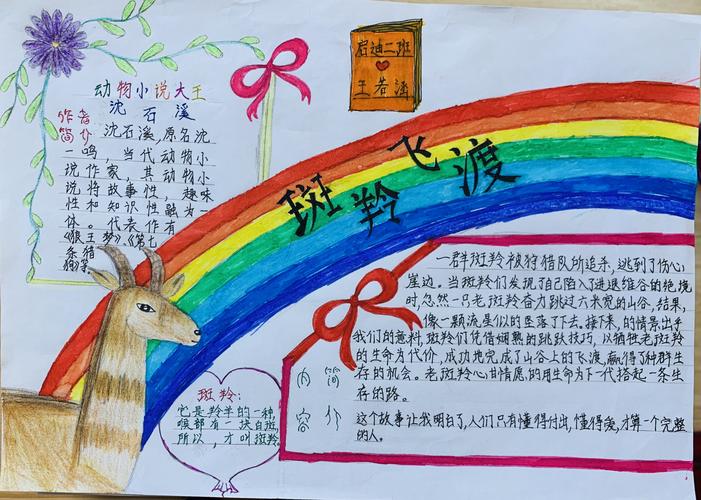 启迪二班
王若涵
动物小说大王
沈石溪
作者
简介
沈石溪,原名沈
一鸣,当代动物小
说作家,其动物小
说将故事性,趣味
性和知识性融为一
体。代表作有
《狼王梦》《第七
条猎
狗》等。
斑羚飞渡
一群斑羚被狩猎队所追杀,逃到了伤心
崖边。当斑羚们发现了自己陷入了进退维谷的绝境
时,忽然一只老斑羚奋力跳过六米宽的山谷,结果,
像一颗流星似的坠落了下去。接下来,的情景出乎
我们的意料,斑羚们凭借娴熟的跳跃技巧,以牺牲老斑羚
的生命为代价,成功地完成了山谷上的飞渡,赢得了种群生
存的机会。老斑羚心甘情愿的用生命为下一代搭起一条生
存的路。
这个故事让我明白了,人们只有懂得付出,懂得爱,才算一个完整
的人。
内容
简介
斑羚:
它是羚羊的一种,
喉部有一块白斑,
所以,才叫斑羚.